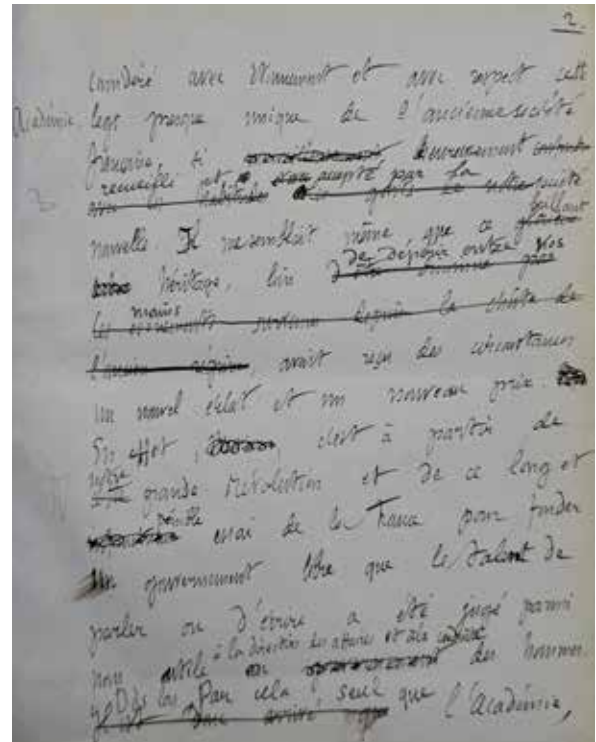 2.
considéré avec étonnement et avec respect cette
Académie, legs presque unique de l'ancienne société
française si heureusement
recueilli et accepté par la
société
nouvelle. Il me semblait même que ce brillant
héritage, loin de dépérir entre vos
mains
les événements survenus depuis la chute de
l'ancien régime, avait reçu des circonstances
un nouvel éclat et un nouveau prix.
En effet, c'est à partir de
notre
grande Révolution et de ce long et
pénible
essai de la France pour fonder
un gouvernement libre que le talent de
parler ou d'écrire a été jugé parmi
nous utile à la direction des affaires et à la conduite des hommes.
Dès lors Par cela seul que l'Académie,
Il est donc arrivé que